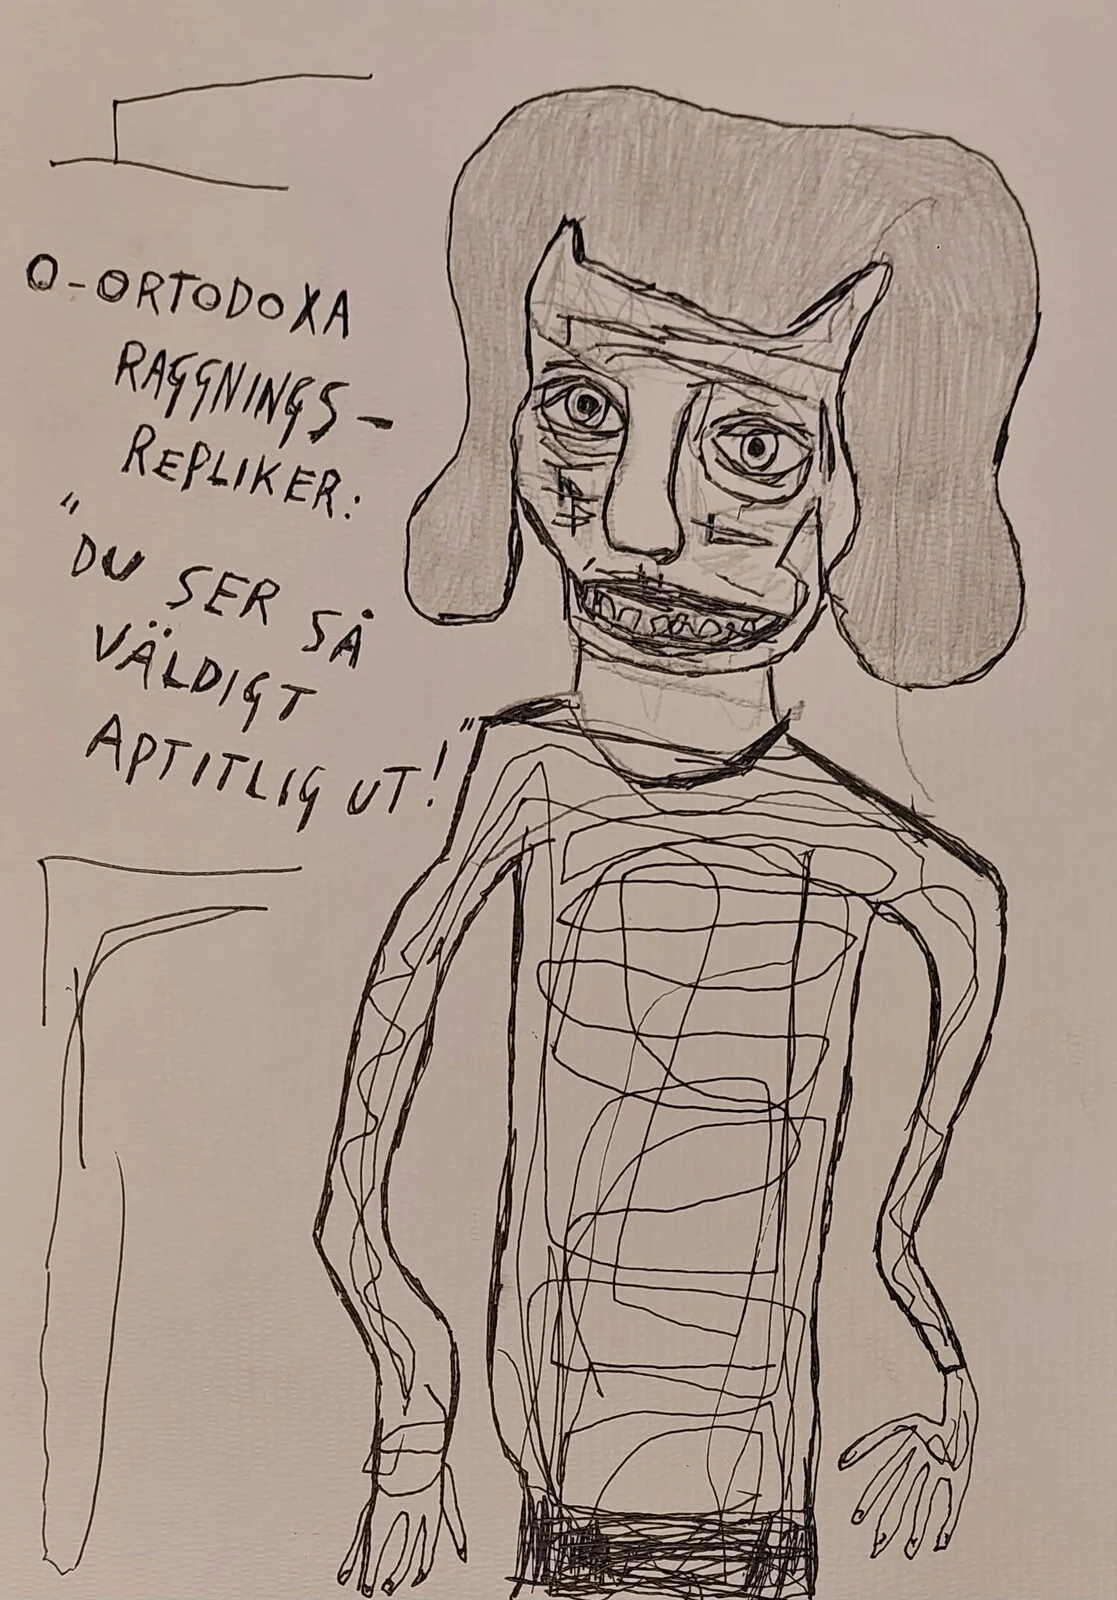 O-ORTODOXA
RAGGNINGS-
REPLIKER:
"DU SER SÅ
VÄLDIGT
APTITLIG UT!"